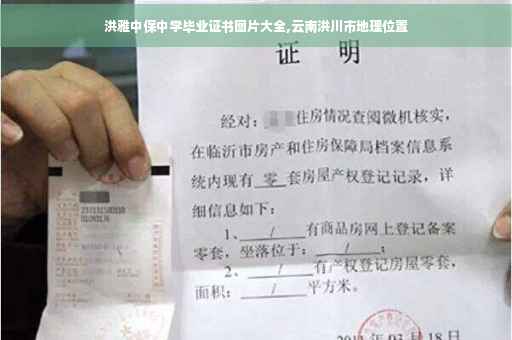 洪雅中保中学毕业证书图片大全,云南洪川市地理位置
证 明
经对: 住房情况查阅微机核实,
在临沂市房产和住房保障局档案信息系
统内现有 零 套房屋产权登记记录,详
细信息如下:
1、 / 有商品房网上登记备案
零套,坐落位于: / ;
2、 / 有产权登记房屋零套,
面积: / 平方米。